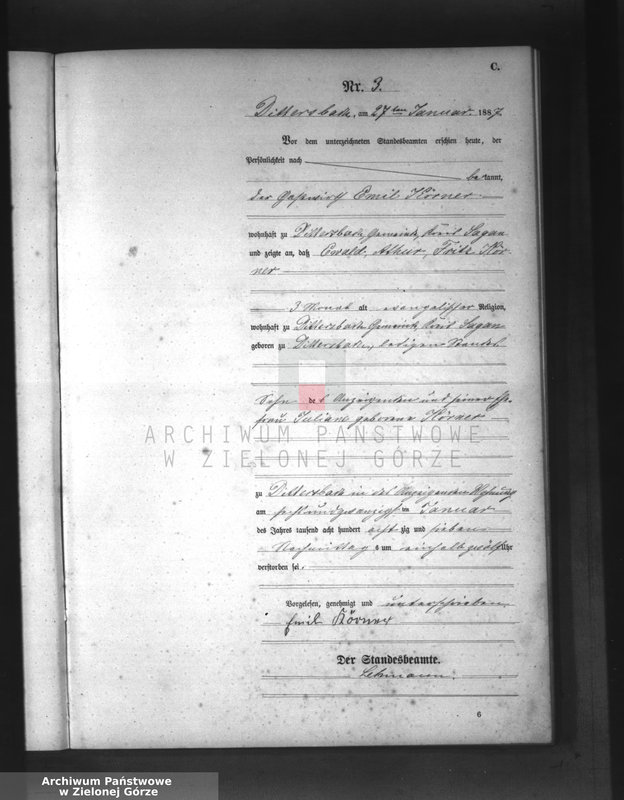 C.
Nr. 3.
Dittersbach, am 27ten Januar 1887.
Vor dem unterzeichneten Standesbeamten erschien heute, der
Persönlichkeit nach
bekannt,
der Gastwirth Emil Körner
wohnhaft zu Dittersbach, Gemeinde, Kreis Sagan
und zeigte an, daß Ewald, Athur, Fritz Kör-
ner
3 Monat alt evangelischer Religion,
wohnhaft zu Dittersbach, Gemeinde, Kreis Sagan
geboren zu Dittersbach, ledigen Standes
Sohn des Anzeigenden und seiner Ehe-
frau Juliane geborene Körner
ARCHIWUM PAŃSTWOWE
W ZIELONEJ GÓRZE
zu Dittersbach in des Anzeigenden Wohnung
am sechsundzwanzigsten Januar
des Jahres tausend acht hundert achtzig und sieben
Nachmittags um einhalb zwölf Uhr
verstorben sei.
Vorgelesen, genehmigt und unterschrieben
Emil Körner
Der Standesbeamte.
Lehmann.
6
Archiwum Państwowe
w Zielonej Górze